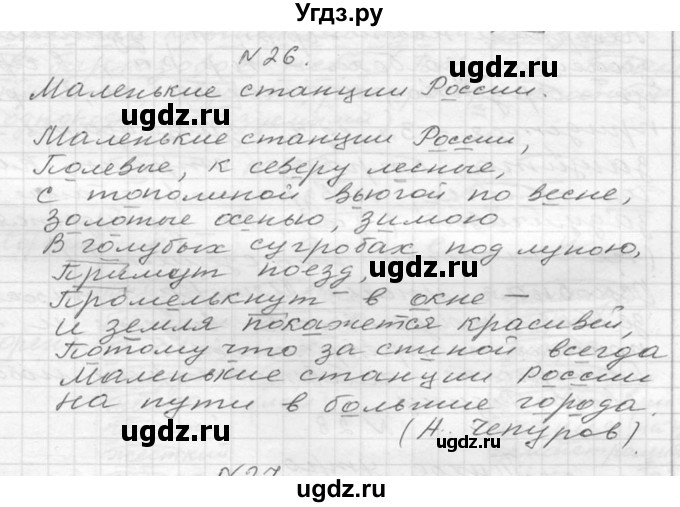 Угдз.ру
N26.
Маленькие станции России.
ugdz.ru
ugdz.ru
Маленькие станции России,
Полевые, к северу лесные,
с тополиной вьюгой по весне,
Золотые осенью, зимою
В голубых сугробах под луною,
Примут поезд,
ugdz.ru
Промелькнут – в окне –
и земля покажется красивей,
Потому что за спиной всегда
Маленькие станции России
на пути в большие города.
ugdz.ru
ugdz.ru
(А. Чепуров).
N27
ugdz.ru